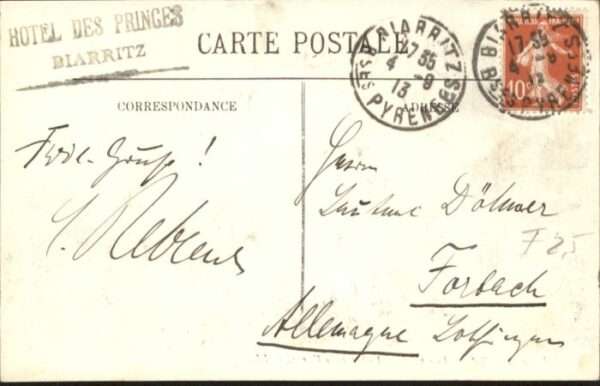 HOTEL DES PRINCES
BIARRITZ
CARTE POSTALE
BIARRITZ
17 35
4 - 9
13
BSES PYRENEES
BIARRITZ
17 35
4 - 9
13
BSES PYRENEES
10c
CORRESPONDANCE
ADRESSE
Frdl. Gruß!
Herrn
Döhmer
F 25
Forbach
Allemagne Lothringen